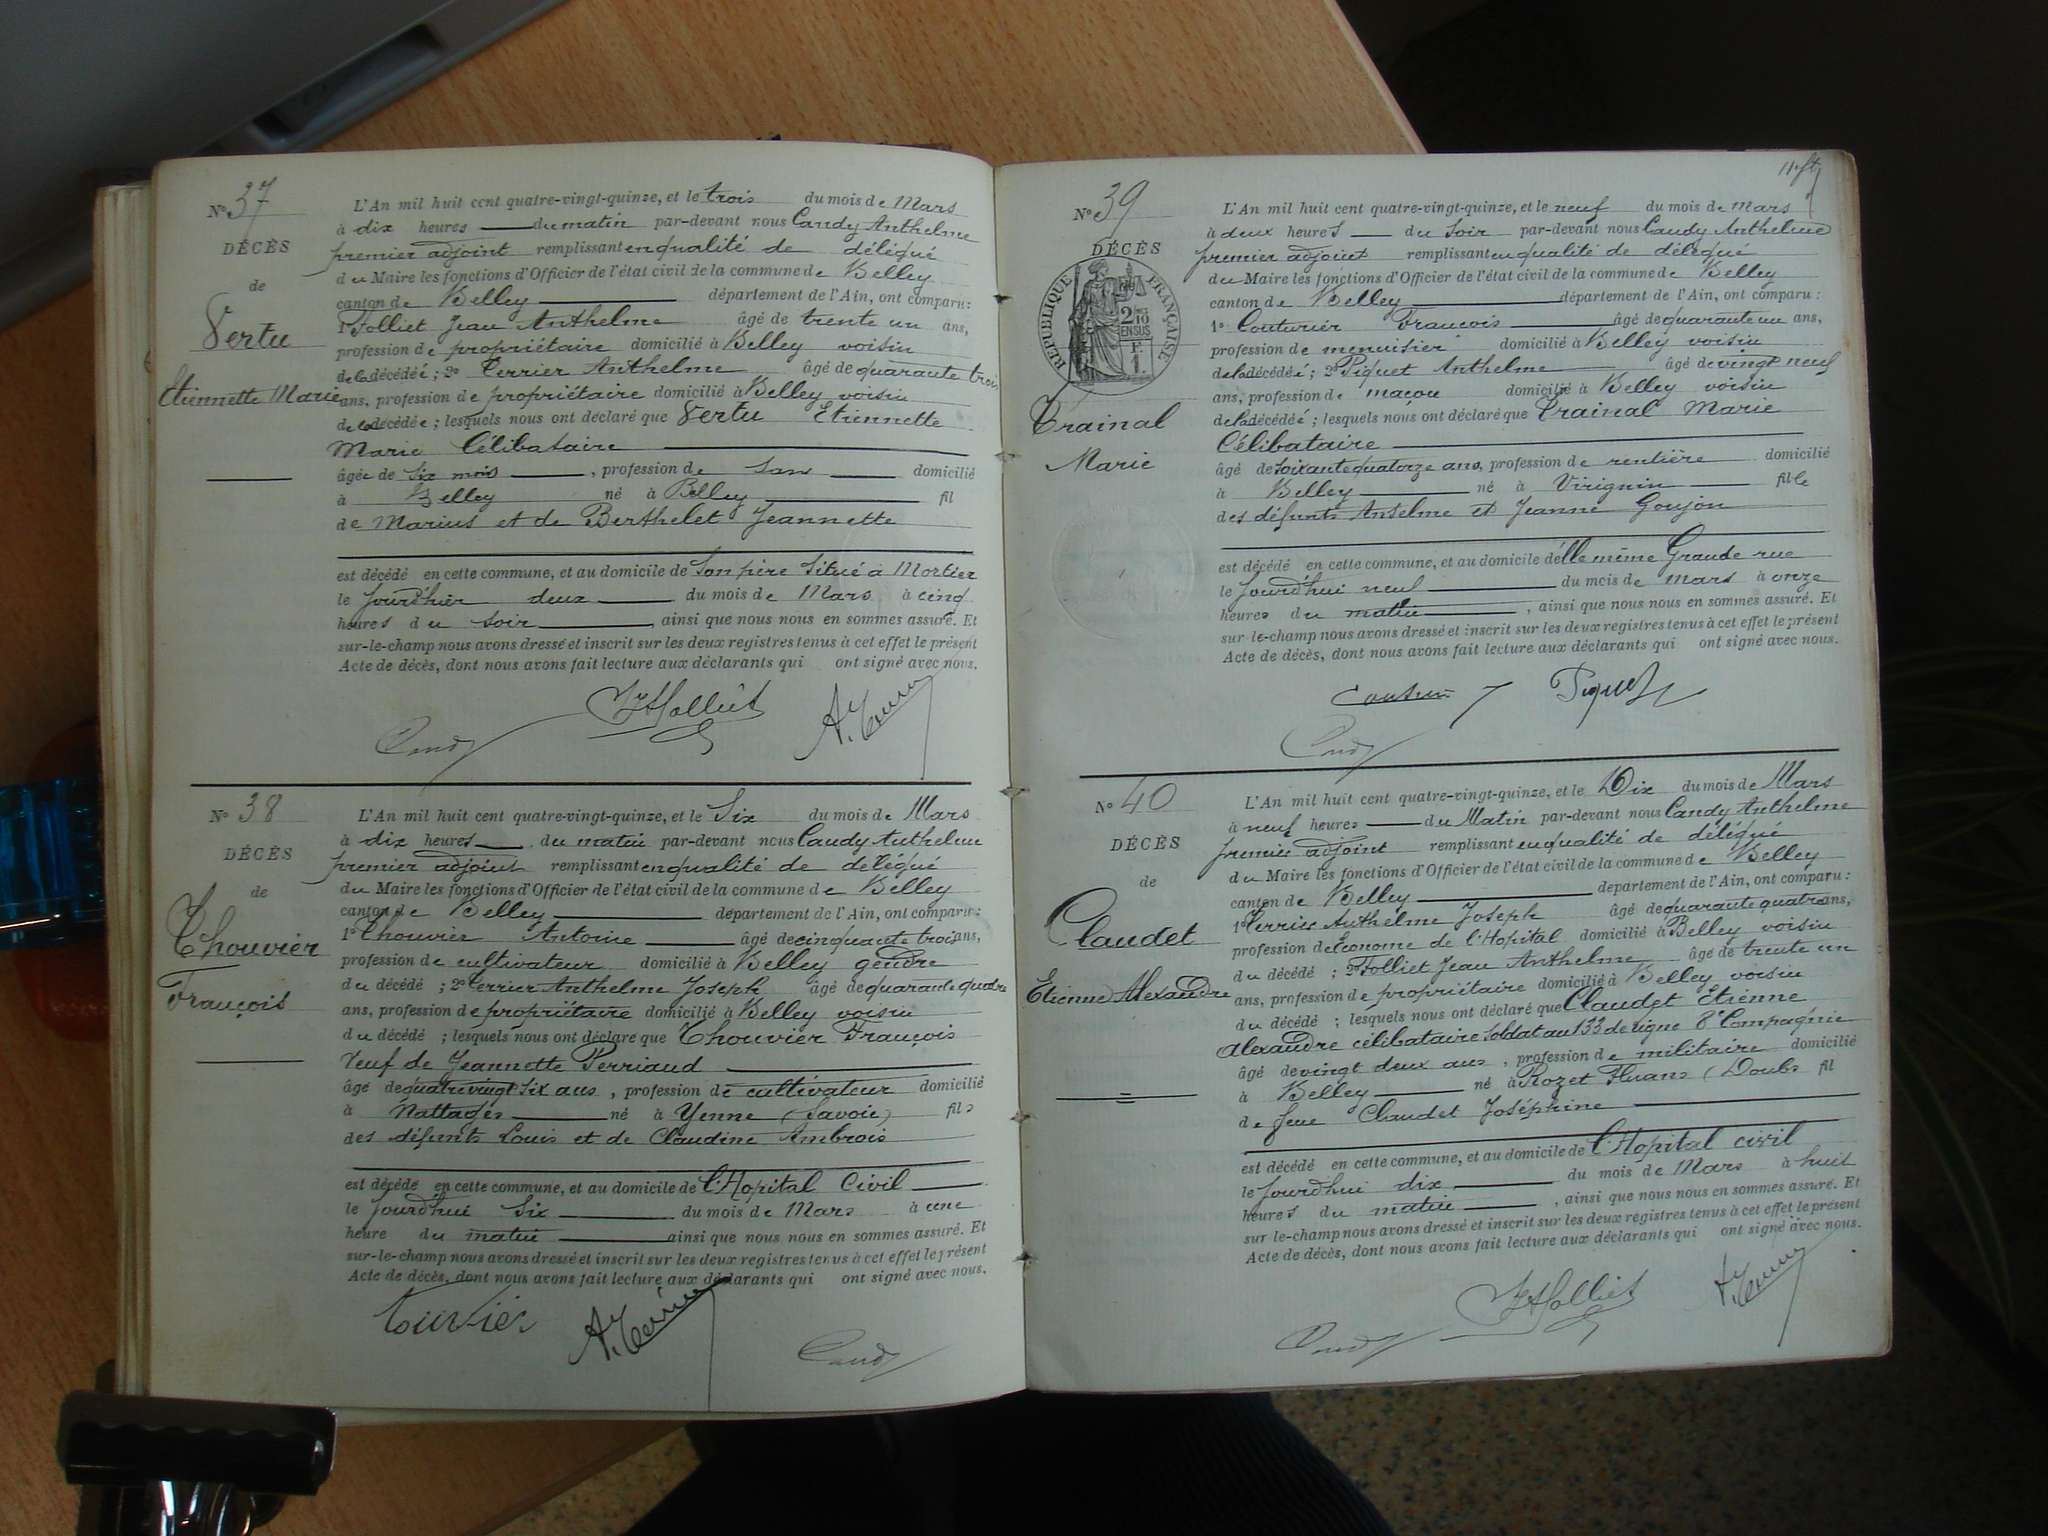 N° 37
DÉCÈS
de
Vertu
Etiennette Marie
L'An mil huit cent quatre-vingt-quinze, et le trois du mois de Mars
à dix heures du matin par-devant nous Candy Anthelme
premier adjoint remplissant en qualité de délégué
du Maire les fonctions d'Officier de l'état civil de la commune de Belley
canton de Belley département de l'Ain, ont comparu :
1° Folliet Jean Anthelme âgé de trente un ans,
profession de propriétaire domicilié à Belley voisin
de la décédée ; 2° Terrier Anthelme âgé de quarante trois
ans, profession de propriétaire domicilié à Belley voisin
de la décédée ; lesquels nous ont déclaré que Vertu Etiennette
Marie Célibataire
âgée de six mois , profession de san domicilié
à Belley né à Belley fil
de Marius et de Berthelet Jeannette
est décédé en cette commune, et au domicile de son père situé à Mortier
le jourd'hier deux du mois de Mars à cinq
heures du soir , ainsi que nous nous en sommes assuré. Et
sur-le-champ nous avons dressé et inscrit sur les deux registres tenus à cet effet le présent
Acte de décès, dont nous avons fait lecture aux déclarants qui ont signé avec nous.
Candy JAFolliet A. Terrier
N° 38
DÉCÈS
de
Thouvier
François
L'An mil huit cent quatre-vingt-quinze, et le Six du mois de Mars
à dix heures du matin par-devant nous Candy Anthelme
premier adjoint remplissant en qualité de délégué
du Maire les fonctions d'Officier de l'état civil de la commune de Belley
canton de Belley département de l'Ain, ont comparu :
1° Thouvier Antoine âgé de cinquante trois ans,
profession de cultivateur domicilié à Belley gendre
du décédé ; 2° Terrier Anthelme Joseph âgé de quarante quatre
ans, profession de propriétaire domicilié à Belley voisin
du décédé ; lesquels nous ont déclaré que Thouvier François
Veuf de Jeannette Perriaud
âgé de quatre vingt six ans , profession de cultivateur domicilié
à Nattages né à Yenne (Savoie) fils
des défunts Louis et de Claudine Ambrois
est décédé en cette commune, et au domicile de l'Hopital Civil
le jourd'hui six du mois de Mars à une
heure du matin ainsi que nous nous en sommes assuré. Et
sur-le-champ nous avons dressé et inscrit sur les deux registres tenus à cet effet le présent
Acte de décès, dont nous avons fait lecture aux déclarants qui ont signé avec nous.
touvier A. Terrier Candy
N° 39
DÉCÈS
RÉPUBLIQUE FRANÇAISE
2/10 EN SUS
F. 1.
Trainal
Marie
L'An mil huit cent quatre-vingt-quinze, et le neuf du mois de Mars
à deux heures du soir par-devant nous Candy Anthelme
premier adjoint remplissant en qualité de délégué
du Maire les fonctions d'Officier de l'état civil de la commune de Belley
canton de Belley département de l'Ain, ont comparu :
1° Couturier François âgé de quarante un ans,
profession de menuisier domicilié à Belley voisin
de la décédé ; 2° Piquet Anthelme âgé de vingt neuf
ans, profession de maçon domicilié à Belley voisin
de la décédé ; lesquels nous ont déclaré que Trainal Marie
Célibataire
âgé de soixante quatorze ans, profession de rentière domicilié
à Belley né à Virignin fille
des défunts Anselme et Jeanne Goujon
est décédé en cette commune, et au domicile d'elle même Grande rue
le jourd'hui neuf du mois de mars à onze
heures du matin , ainsi que nous nous en sommes assuré. Et
sur-le-champ nous avons dressé et inscrit sur les deux registres tenus à cet effet le présent
Acte de décès, dont nous avons fait lecture aux déclarants qui ont signé avec nous.
Piquet
Candy
N° 40
DÉCÈS
de
Claudet
Etienne Alexandre
L'An mil huit cent quatre-vingt-quinze, et le Dix du mois de Mars
à neuf heures du Matin par-devant nous Candy Anthelme
premier adjoint remplissant en qualité de délégué
du Maire les fonctions d'Officier de l'état civil de la commune de Belley
canton de Belley département de l'Ain, ont comparu :
1° Terrier Anthelme Joseph âgé de quarante quatre ans,
profession de Econome de l'Hopital domicilié à Belley voisin
du décédé ; 2° Folliet Jean Anthelme âgé de trente un
ans, profession de propriétaire domicilié à Belley voisin
du décédé ; lesquels nous ont déclaré que Claudet Etienne
Alexandre célibataire Soldat au 133 de ligne 8e Compagnie
âgé de vingt deux ans , profession de militaire domicilié
à Belley né à Rozet Fluans (Doubs fil
de feue Claudet Joséphine
est décédé en cette commune, et au domicile de l'Hopital civil
le jourd'hui dix du mois de Mars à huit
heures du matin , ainsi que nous nous en sommes assuré. Et
sur-le-champ nous avons dressé et inscrit sur les deux registres tenus à cet effet le présent
Acte de décès, dont nous avons fait lecture aux déclarants qui ont signé avec nous.
Candy JAFolliet A. Terrier